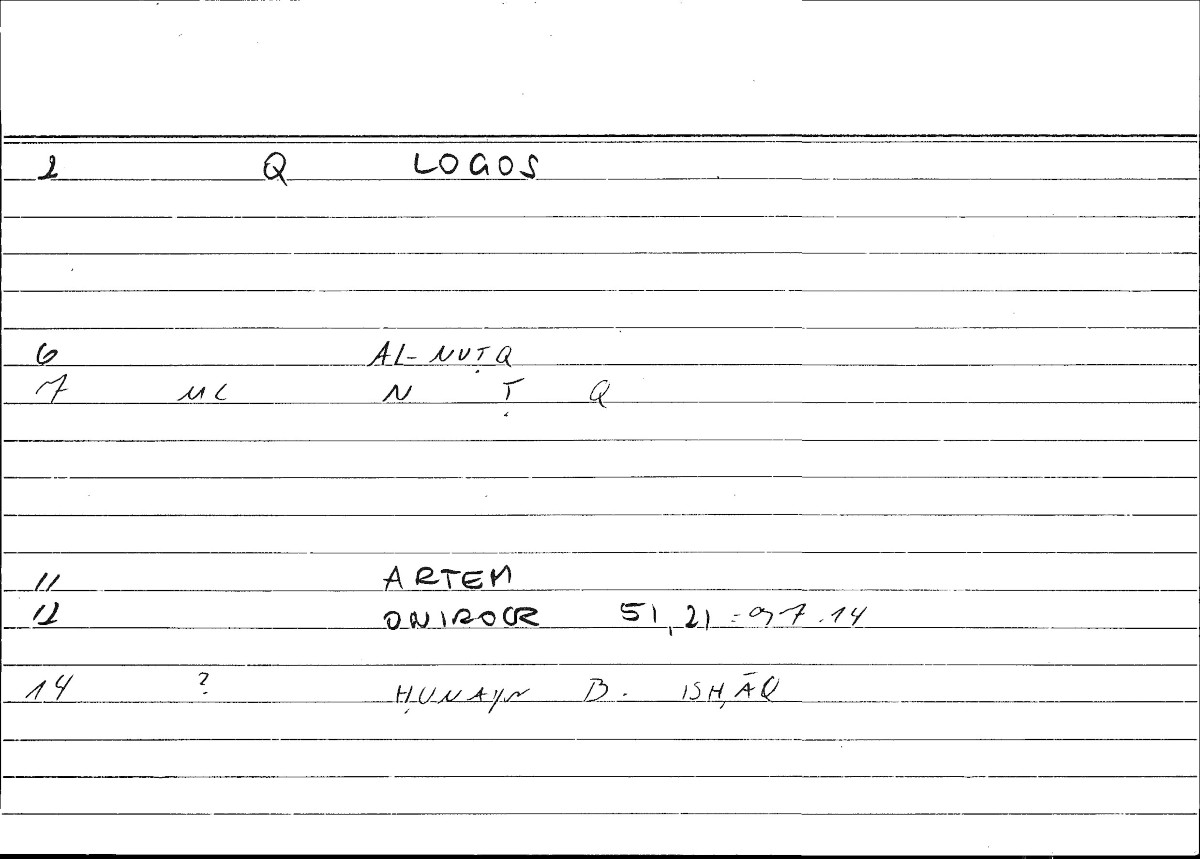 2 Q LOGOS
6 AL-NUṬQ
7 ML N Ṭ Q
11 ARTEM
12 ONIROCR 51,21 = 97.14
14 ? ḤUNAYN B. ISḤĀQ